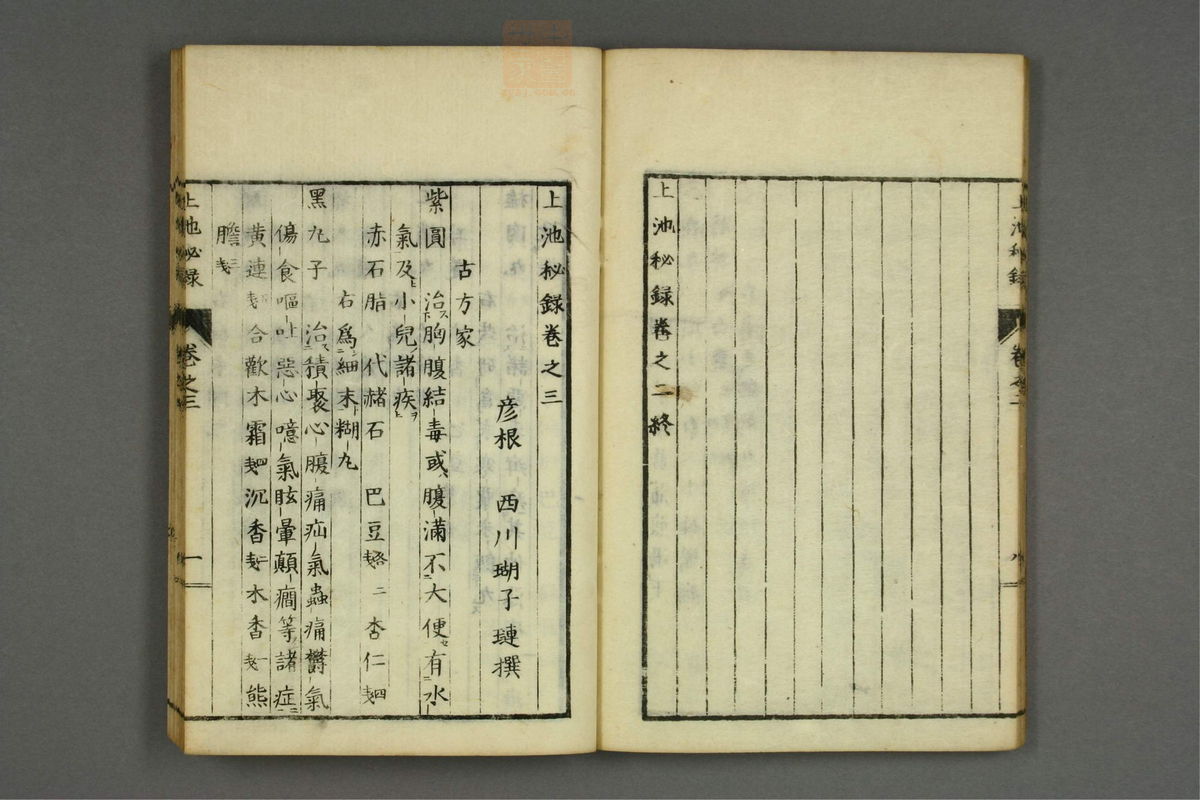 上池秘録
卷之二
八
上池秘録卷之二終
上池秘録卷之三
彦根 西川瑚子璉撰
古方家
紫圓 治胸腹結毒或腹滿不大便有水
氣及小兒諸疾
赤石脂 代赭石 巴豆各戔 二 杏仁四戔
右爲細末糊丸
黑丸子 治積聚心腹痛疝氣蟲痛鬱氣
傷食嘔吐惡心噫氣眩暈顛癇等諸症
黄連戔 合歡木霜四戔 沉香一戔 木香一戔 熊
膽三戔
上池秘録
卷之三
一